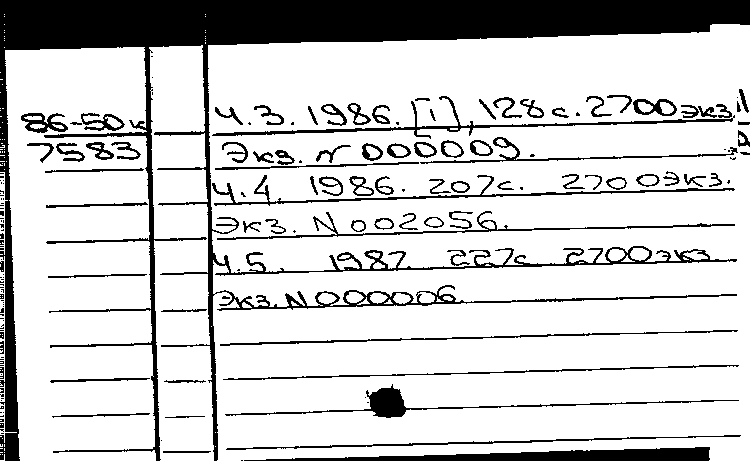 86-50к Ч.3. 1986. [1], 128 с. 2700 экз.
7583 Экз. № 000009.
Ч.4. 1986. 207с. 2700экз.
Экз. N 002056.
Ч.5. 1987. 227с 2700экз
Экз. N 000006.